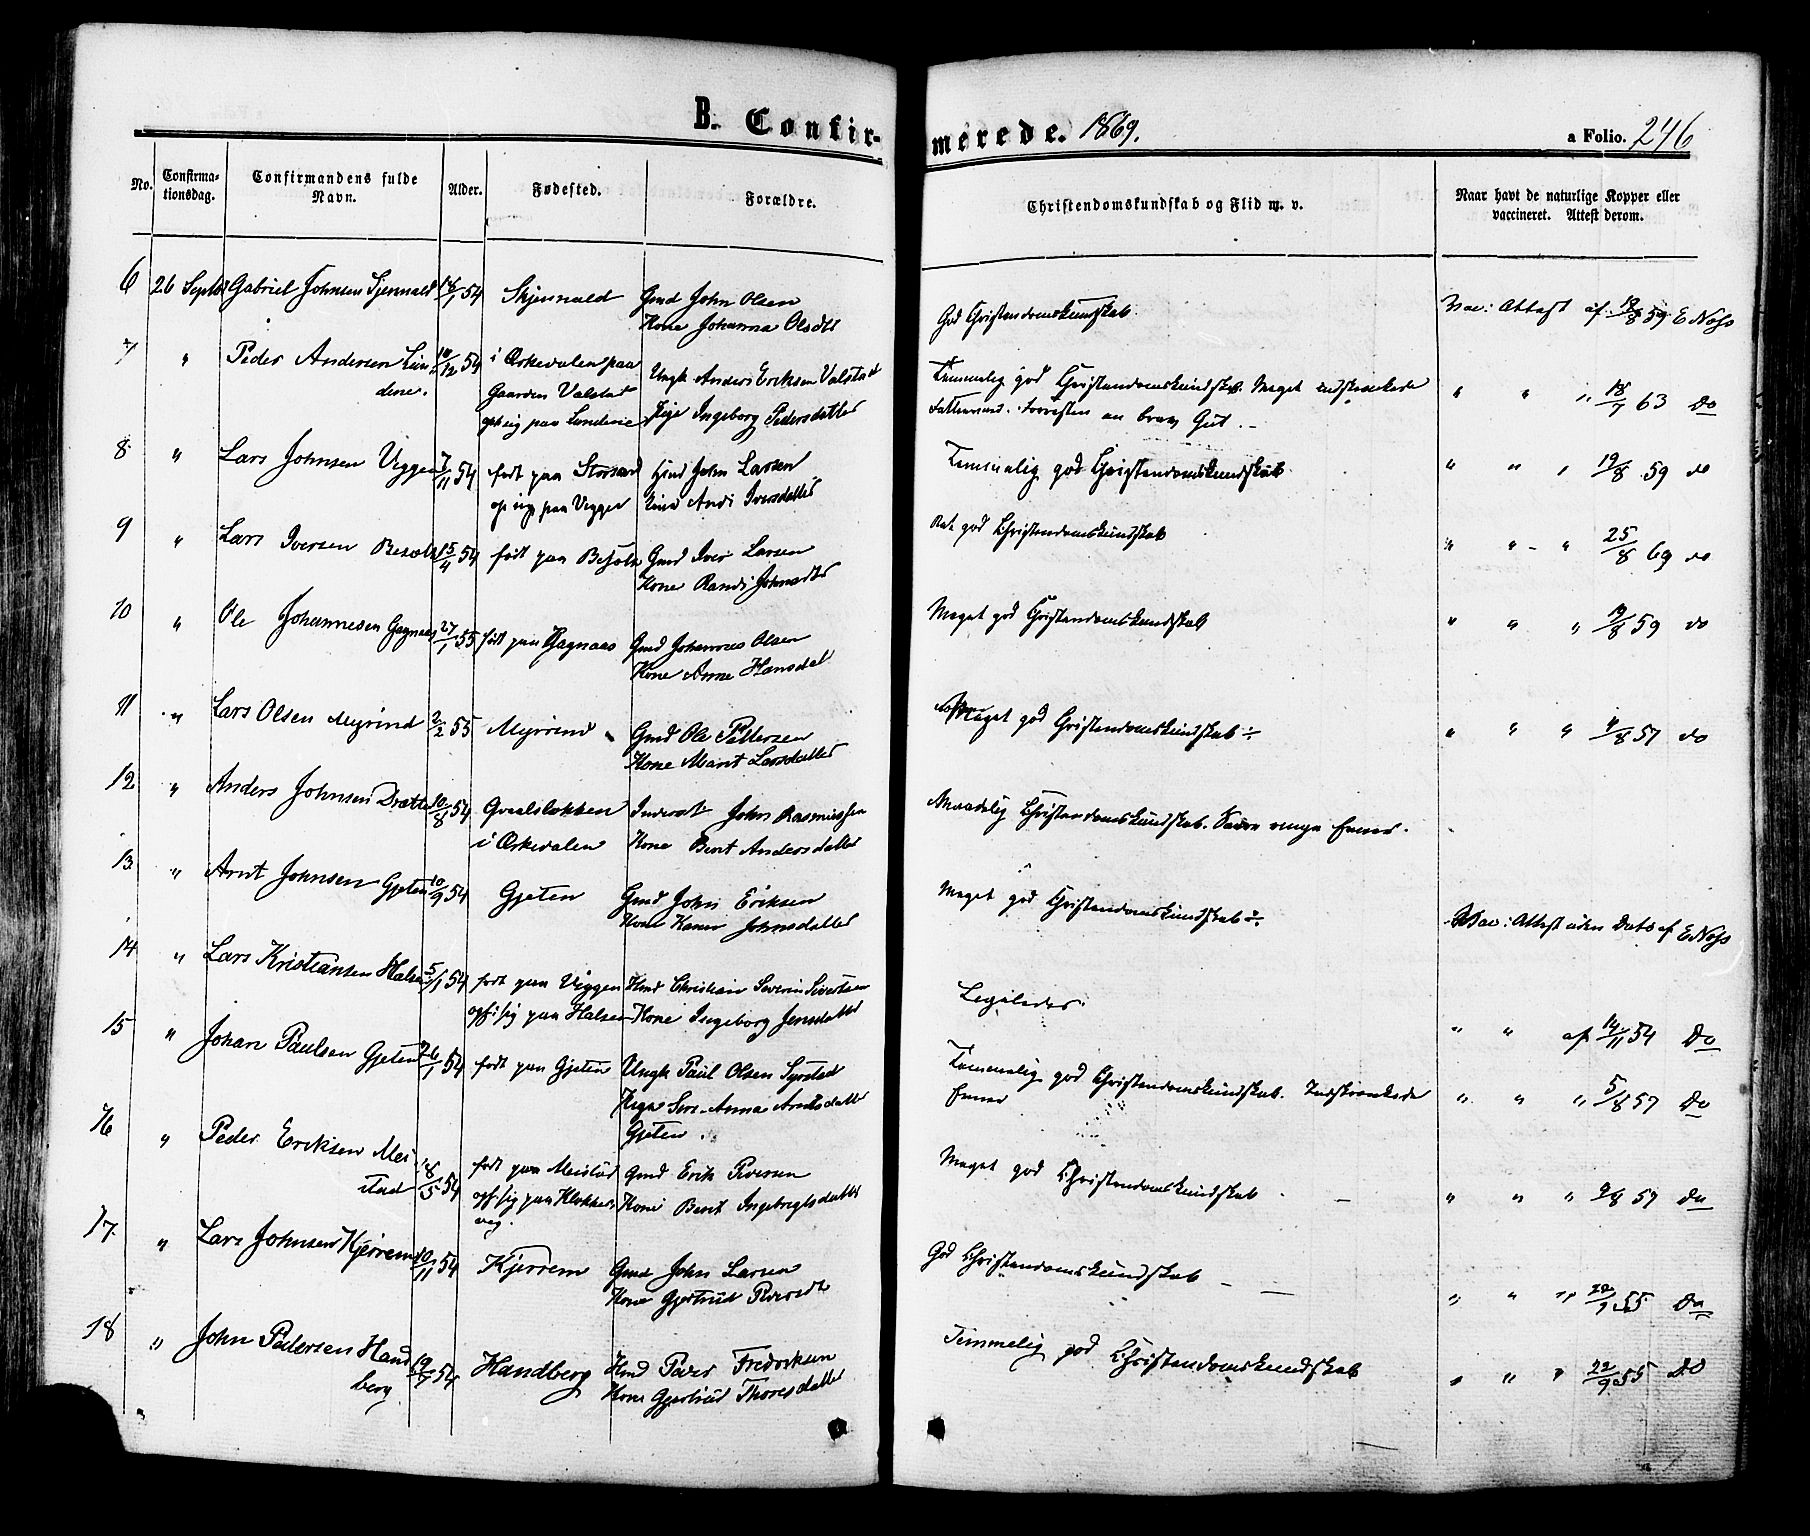 B. Confirmerede. 1869.
a Folio. 246
No.
Confirmationsdag.
Confirmandens fulde Navn.
Alder.
Fødested.
Forældre.
Christendomskundskab og Flid m. v.
Naar havt de naturlige Kopper eller vaccineret. Attest derom.
6 26 Septbr Gabriel Johnsen 18/1 54 Gmd John Olsen
Kone Johanna Olsdtr
God Christendomskundskab.
Vac: Attest af 19/8 59
7 " Peder Andersen 10/12 54 i Ørkedalen paa
Gaarden Valstad
Ungk Anders Eriksen Valstad
Pige Ingeborg Pedersdatter
Temmelig god Christendomskundskab. Meget indskrænkede
Fatteevner. Forresten en brav Gut.
" " " 18/7 63 Do
8 " Lars Johnsen Viggen 7/11 54 født paa
paa Viggen
John Larsen
Iversdatter
Temmelig god Christendomskundskab
" " " 19/8 59 do
9 " Lars Iversen 15/4 54 født paa
Gmd Iver Larsen
Kone Randi Johnsdtr
god Christendomskundskab
" " " 25/8 69 do
10 " Ole Johannesen 27/1 55 født paa
Gmd Johannes Olsen
Kone Anne Hansdat
Meget god Christendomskundskab
" " " 19/8 59 do
11 " Lars Olsen Myrind 2/2 55 Gmd Ole Pettersen
Kone Marit Larsdatter
Meget god Christendomskundskab
" " " 4/8 57 do
12 " Anders Johnsen 10/8 54 Qvaalsløkken
i Ørkedalen
Inderst John Rasmussen
Kone Berit Andersdatter
Maadelig Christendomskundskab. ringe Evner.
13 " Arnt Johnsen Gjeten 10/9 54 Gjeten Gmd John Eriksen
Kone Karen Johnsdatter
Meget god Christendomskundskab
Vac: Attest uden Dato af
14 " Lars Kristiansen Halsen 5/1 54 født paa Viggen
paa Halsen
Christian Severin Sivertsen
Kone Ingeborg Jensdatter
Ligeledes
" " af 14/11 54 Do
15 " Johan Paulsen Gjeten 26/1 54 født paa Gjeten Ungk Paul Olsen Syrstad
Pige Anna Arntsdatter
Gjeten.
Temmelig god Christendomskundskab. Indskrænkede
Evner
" " " 5/8 57 Do
16 " Peder Eriksen Mei-
stad
18/5 54 født paa Meistad
paa Klokker-
Gmd Erik Pedersen
Kone Berit Ingebrigtsdatter
Meget god Christendomskundskab
" " " 9/8 57 Do
17. " Lars Johnsen Kjerrem 10/11 54 Kjerrem Gmd John Larsen
Kone Gjertrud
God Christendomskundskab
" " " 55 Do
18 " John Pedersen Hand
berg
19/7 54 Handberg Peder Fredriksen
Kone Gjertrud Thoresdatter
Temmelig god Christendomskundskab
" " " 22/9 55 Do